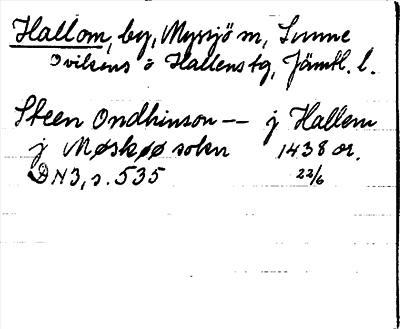 Hallom, by, Myssjö m, Sunne
Ovikens o Hallens tg, Jämtl. l.
Steen Ondhinson -- j Hallem
j Møskøø sokn 1438 or.
DN3, s. 535 22/6